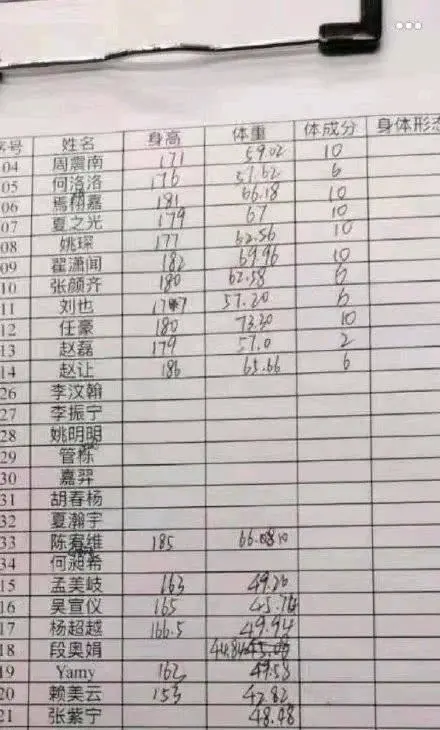 序号 姓名 身高 体重 体成分 身体形态
04 周震南 171 59.02 10
05 何洛洛 176 57.62 6
06 焉栩嘉 181 66.18 10
07 夏之光 179 67 10
08 姚琛 177 62.56 10
09 翟潇闻 182 69.96 10
10 张颜齐 180 62.58 6
11 刘也 57.20 6
12 任豪 180 73.30 10
13 赵磊 179 57.0 2
14 赵让 186 65.66 6
26 李汶翰
27 李振宁
28 姚明明
29 管栎
30 嘉羿
31 胡春杨
32 夏瀚宇
33 陈宥维 185
34 何昶希
15 孟美岐 163 49.20
16 吴宣仪 165
17 杨超越 166.5 49.94
18 段奥娟 44.84
19 Yamy 162 49.58
20 赖美云 153 42.82
21 张紫宁 48.48